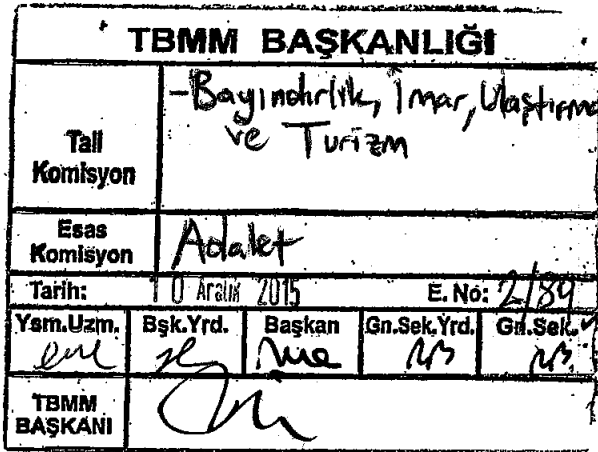 TBMM BAŞKANLIĞI
Tali
Komisyon
-Bayındırlık, İmar, Ulaştırma
ve Turizm
Esas
Komisyon
Adalet
Tarih: 10 Aralık 2015 E. No: 2/89
Ysm.Uzm. Bşk.Yrd. Başkan Gn.Sek.Yrd. Gn.Sek.
TBMM
BAŞKANI